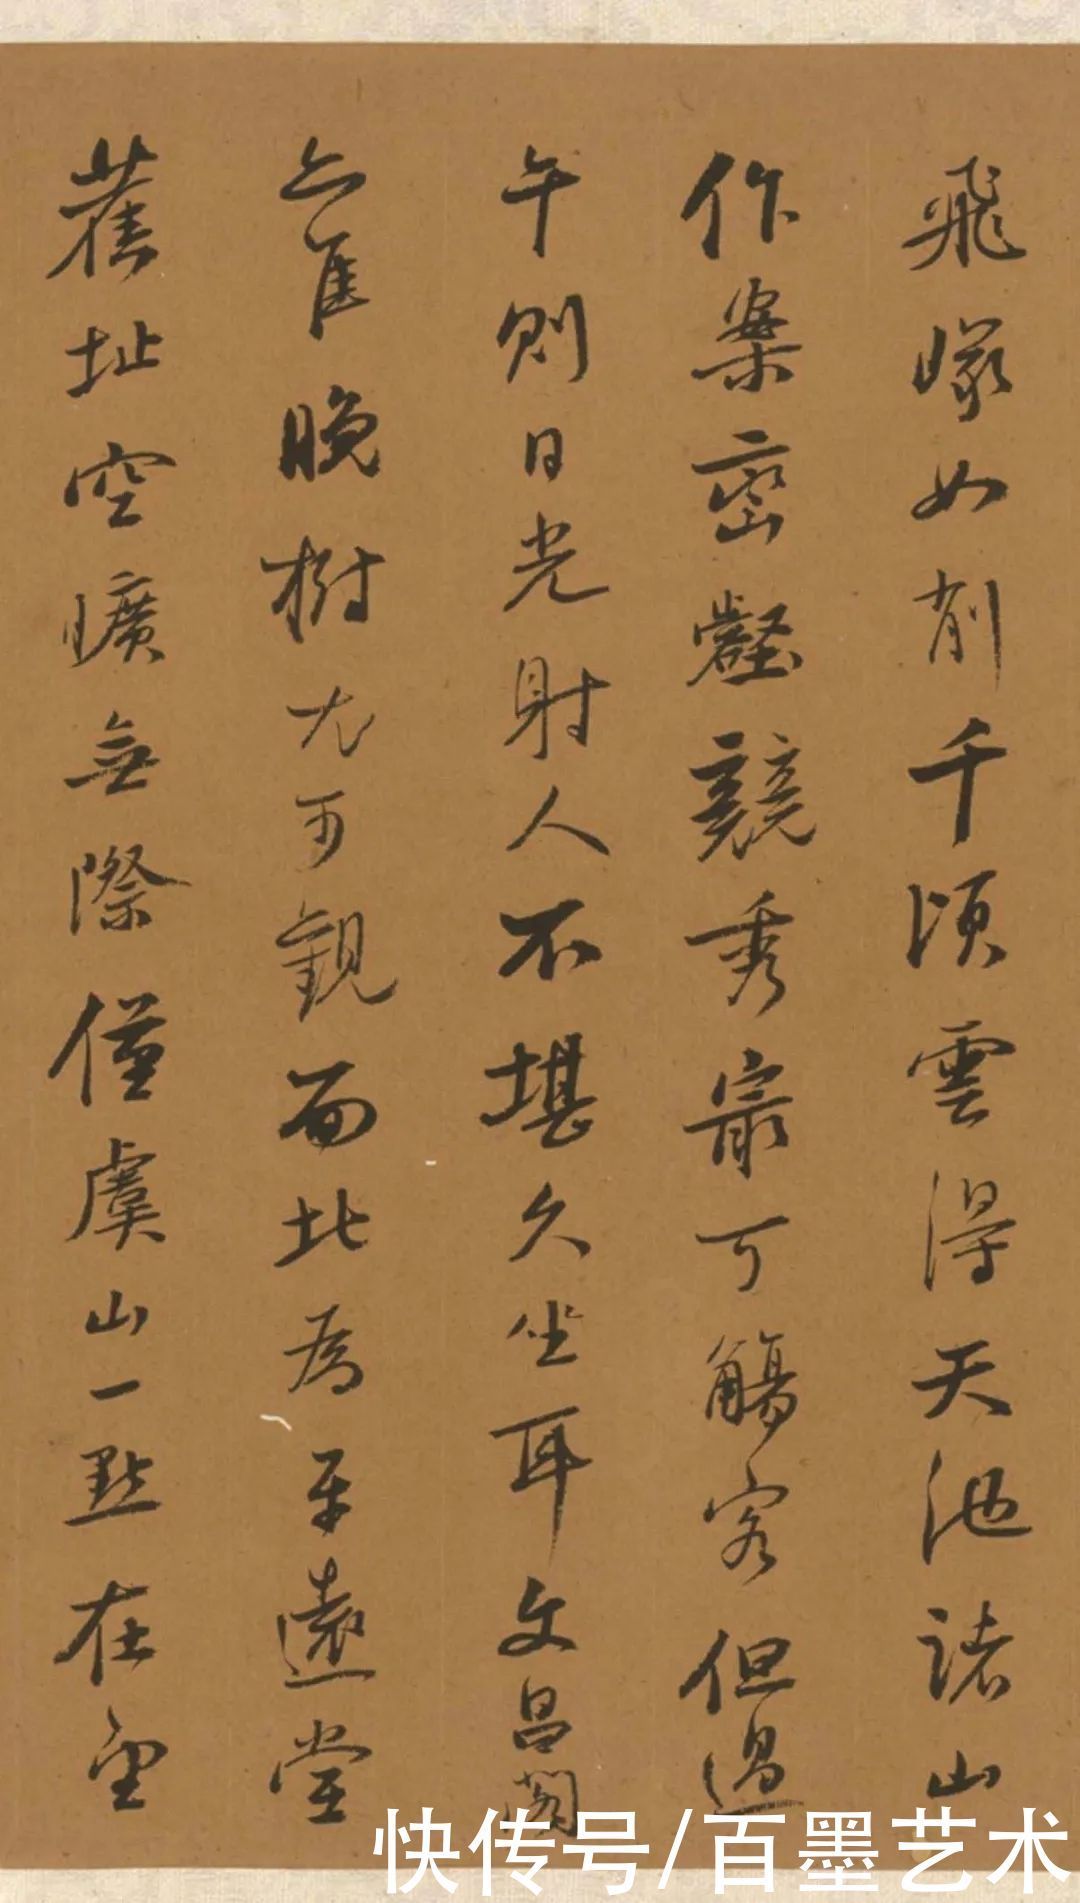 飛巖如削千頃雲得天池諸山
作案巒壑競秀最可觴客但過
午則日光射人不堪久坐耳文昌閣
亦佳晚樹尤可觀而北為平遠堂
舊址空曠無際僅虞山一點在望
快传号/百墨艺术